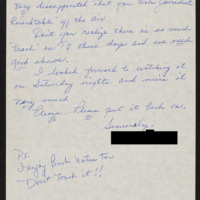 very disappointed that you took Journalist
Roundtable off the air.
Don't you realize there is so much
"trash" on TV these days and we need
good shows.
I looked forward to watching it
on Saturday nights and miss it
very much.
Please. Please put it back on.
Sincerely,
P.S.
I enjoy Bach's notes too
Don't touch it!!